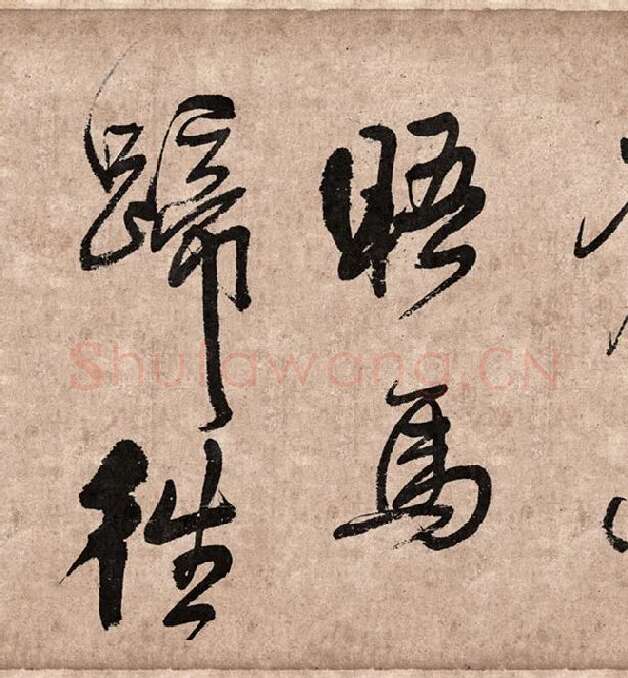 晤馬
蹄徃
Shufawang.CN